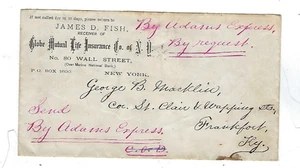 If not called for in 10 days, please return to
JAMES D. FISH,
RECEIVER OF
Globe Mutual Life Insurance Co. of N.Y.
No. 80 WALL STREET,
(Over Marine National Bank.)
P.O. BOX
NEW YORK.
By Adams Express,
By request
George B. Macklin,
Cor. St. Clair & Wapping Sts.
Frankfort,
Ky.
Send
By Adams Express.
C.O.D.